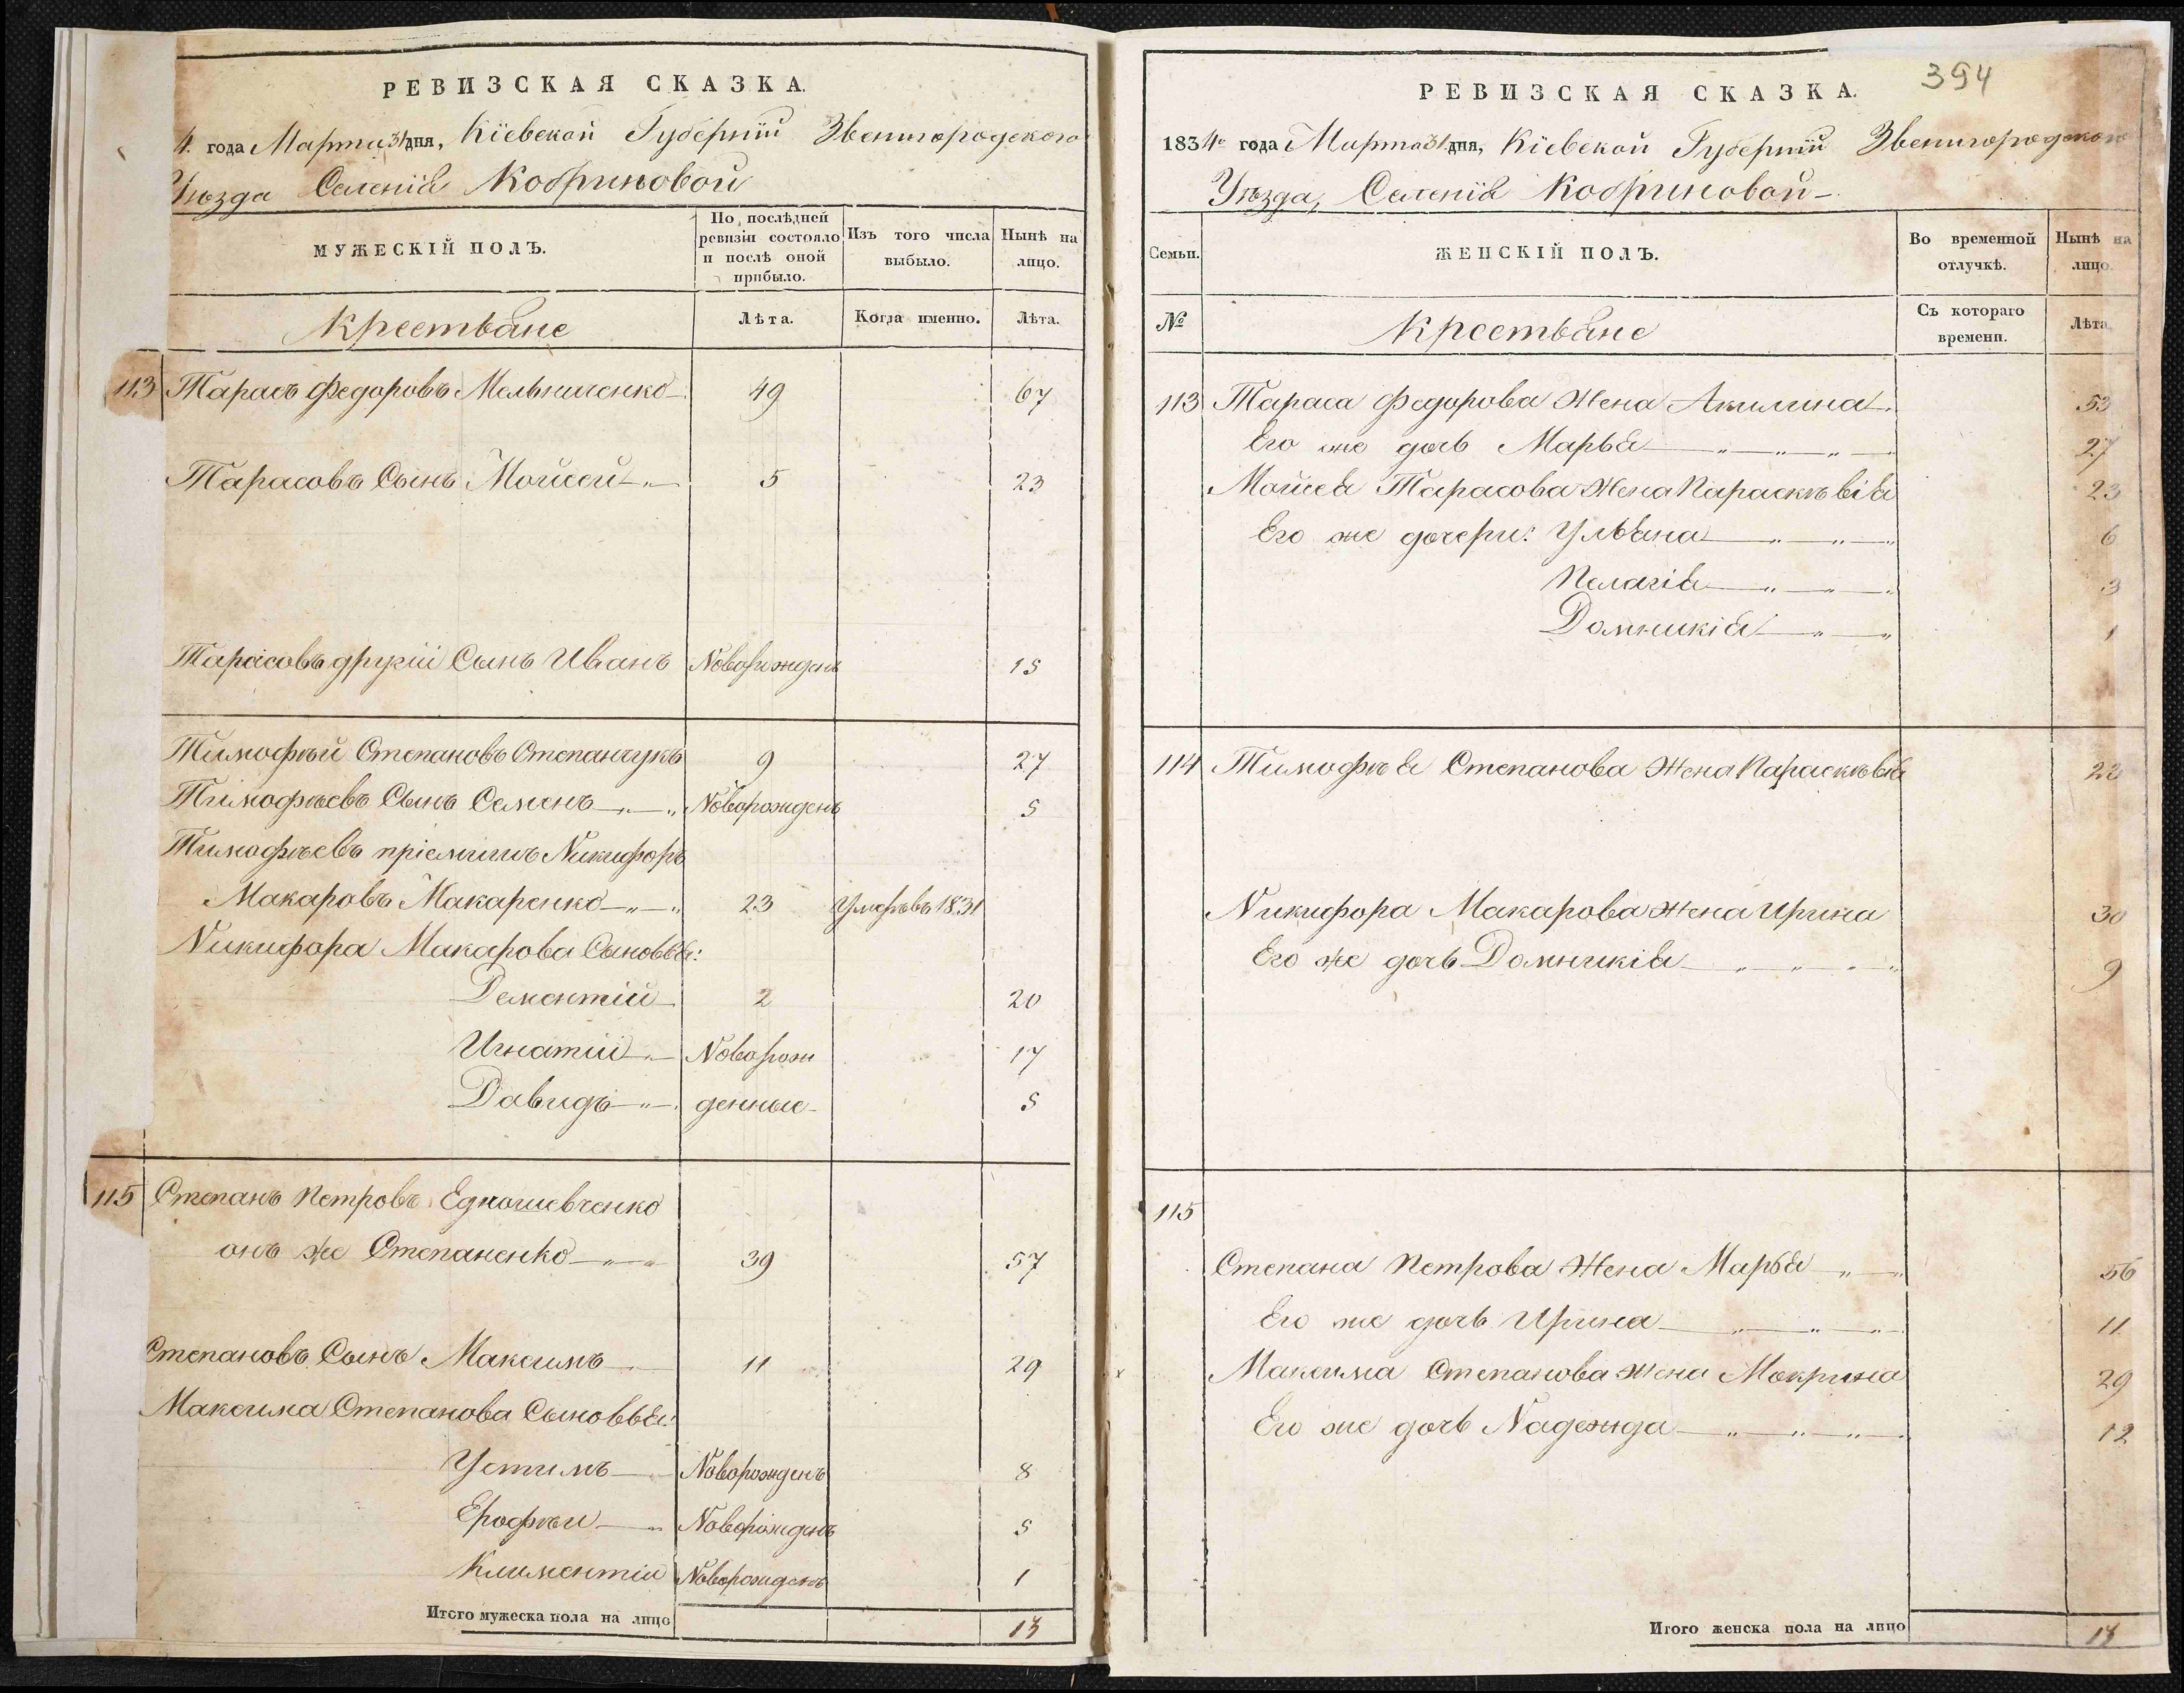 РЕВИЗСКАЯ СКАЗКА.
4. года Марта 31 дня, Кіевской Губерніи Звенигородского
Уѣзда Селенія Кобриновой
МУЖЕСКІЙ ПОЛЪ.
По послѣдней ревизіи состояло и послѣ оной прибыло.
Изъ того числа выбыло.
Нынѣ на лицо.
Крестьяне
Лѣта.
Когда именно.
Лѣта.
113 Тарасъ Федоровъ Мельниченко 49 67
Тарасовъ Сынъ Мойсей 5 23
Тарасовъ другій Сынъ Иванъ Новорожденъ 15
Тимофѣй Степановъ Степанчукъ 9 27
Тимофѣевъ Сынъ Семенъ Новорожденъ 5
Тимофѣевъ пріемышъ Никифоръ
Макаровъ Макаренко 23 Умеръ въ 1831
Никифора Макарова Сыновья:
Дементій 2 20
ИгнатійНоворож 17
Давидъ денные 5
115 Степанъ Петровъ Едношевченко
онъ же Степаненко 39 57
Степановъ Сынъ Максимъ 11 29
Максима Степанова Сыновья:
Устимъ Новорожденъ 8
Ерофѣй Новорожденъ 5
Климентій Новорожденъ 1
Итого мужеска пола на лицо 13
394
РЕВИЗСКАЯ СКАЗКА.
1834го года Марта 31 дня, Кіевской Губерніи Звенигородского
Уѣзда, Селенія Кобриновой
Семьи.
ЖЕНСКІЙ ПОЛЪ.
Во временной отлучкѣ.
Нынѣ на лицо.
№
Крестьяне
Съ котораго времени.
Лѣта
113 Тараса Федорова Жена Акилина 53
Его же дочь Марья 27
Мойсея Тарасова Жена Параскѣвія 23
Его же дочери: Ульяна 6
Пелагія 3
Домникія 1
114 Тимофѣя Степанова Жена Параскѣвія 22
Никифора Макарова жена Ирина 30
Его же дочь Домникія 9
115
Степана Петрова Жена Марья 56
Его же дочь Ирина 11
Максима Степанова жена Мокрина 29
Его же дочь Надежда 12
Итого женска пола на лицо